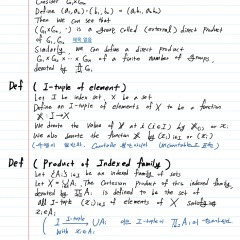 Consider G₁×G₂
Define (a₁,a₂)·(b₁,b₂) = (a₁b₁, a₂b₂)
Then we can see that
(G₁×G₂, ·) is a group called (external) direct product
of G₁, G₂
Similarly, we can define a direct product
G₁×G₂×⋯×Gₙ of a finite number of groups,
denoted by
Def ( I-tuple of element)
Let I be index set, X be a set
Define an I-tuple of elements of X to be a function
x : I → X
We denote the value of x at i (i∈I) by x(i) or xᵢ
We also denote the function x by (xᵢ)ᵢ∈I or (xᵢ)
Def ( Product of Indexed family)
Let {Aᵢ}ᵢ∈I be an indexed family of sets
Let X = ∪Aᵢ. The Cartesian product of this indexed family,
denoted by ∏Aᵢ is defined to be the set of
all I-tuple (xᵢ)ᵢ∈I of elements of X satisfying
xᵢ∈Aᵢ
( I → ∪Aᵢ
with xᵢ∈Aᵢ